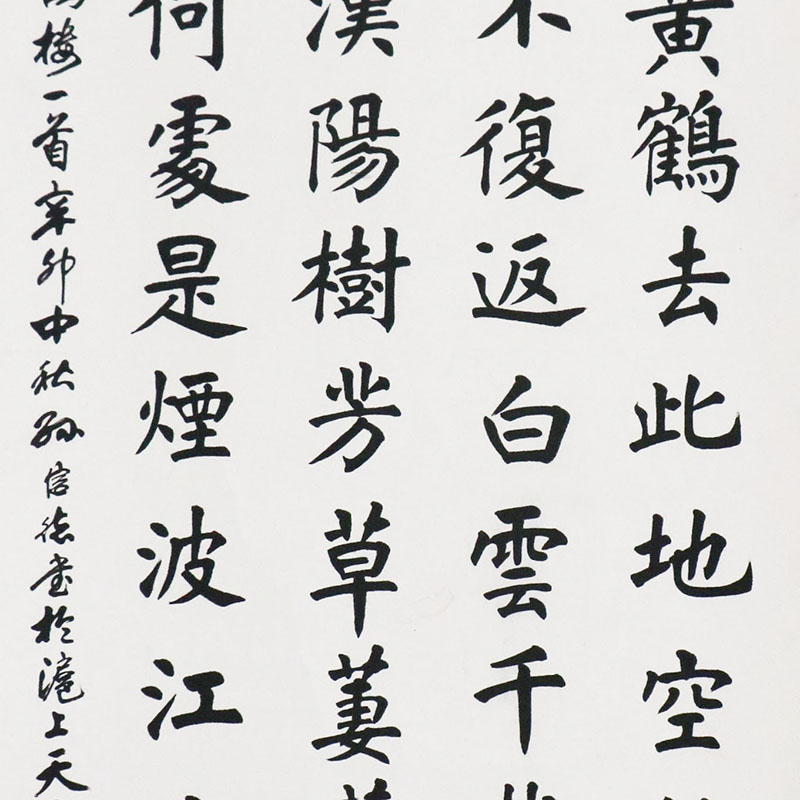 黄鶴去此地空
不復返白雲千載
漢陽樹芳草萋萋
何處是煙波江
樓一首辛卯中秋孫信德書於滬上天